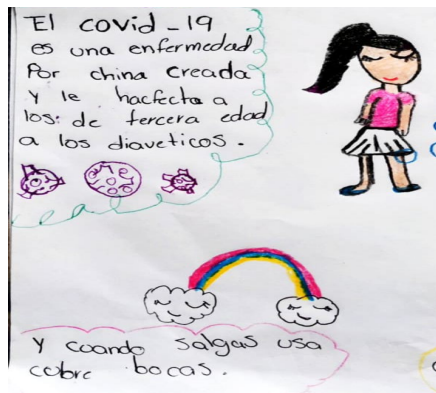 El covid_19
es una enfermedad
Por china creada
y le hacfecta a
los: de tercera edad
a los diaveticos.
Y cuando salgas usa
cubre bocas.